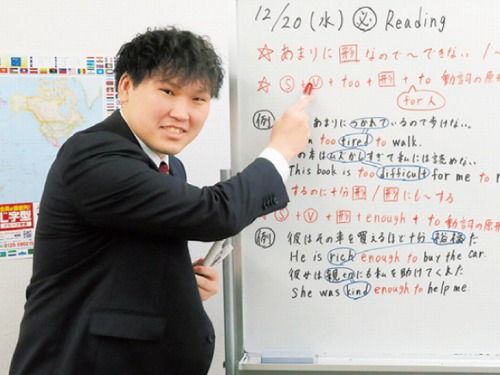 12/20(水) 必 Reading
☆ あまりに 形 なので〜できない
☆ S + V + too + 形 + to 動詞の原形
for 人
例 あまりにつかれているので歩けない。
too tired to walk.
の本はムズかしすぎて私には読めない。
This book is too difficult for me to
するのに十分 形 / 形 にも〜する
☆ S + V + 形 + enough + to 動詞の原形
例 彼はその車を買えるほど十分裕福だ
He is rich enough to buy the car.
彼女は親切にも私を助けてくれた
She was kind enough to help me.
字型